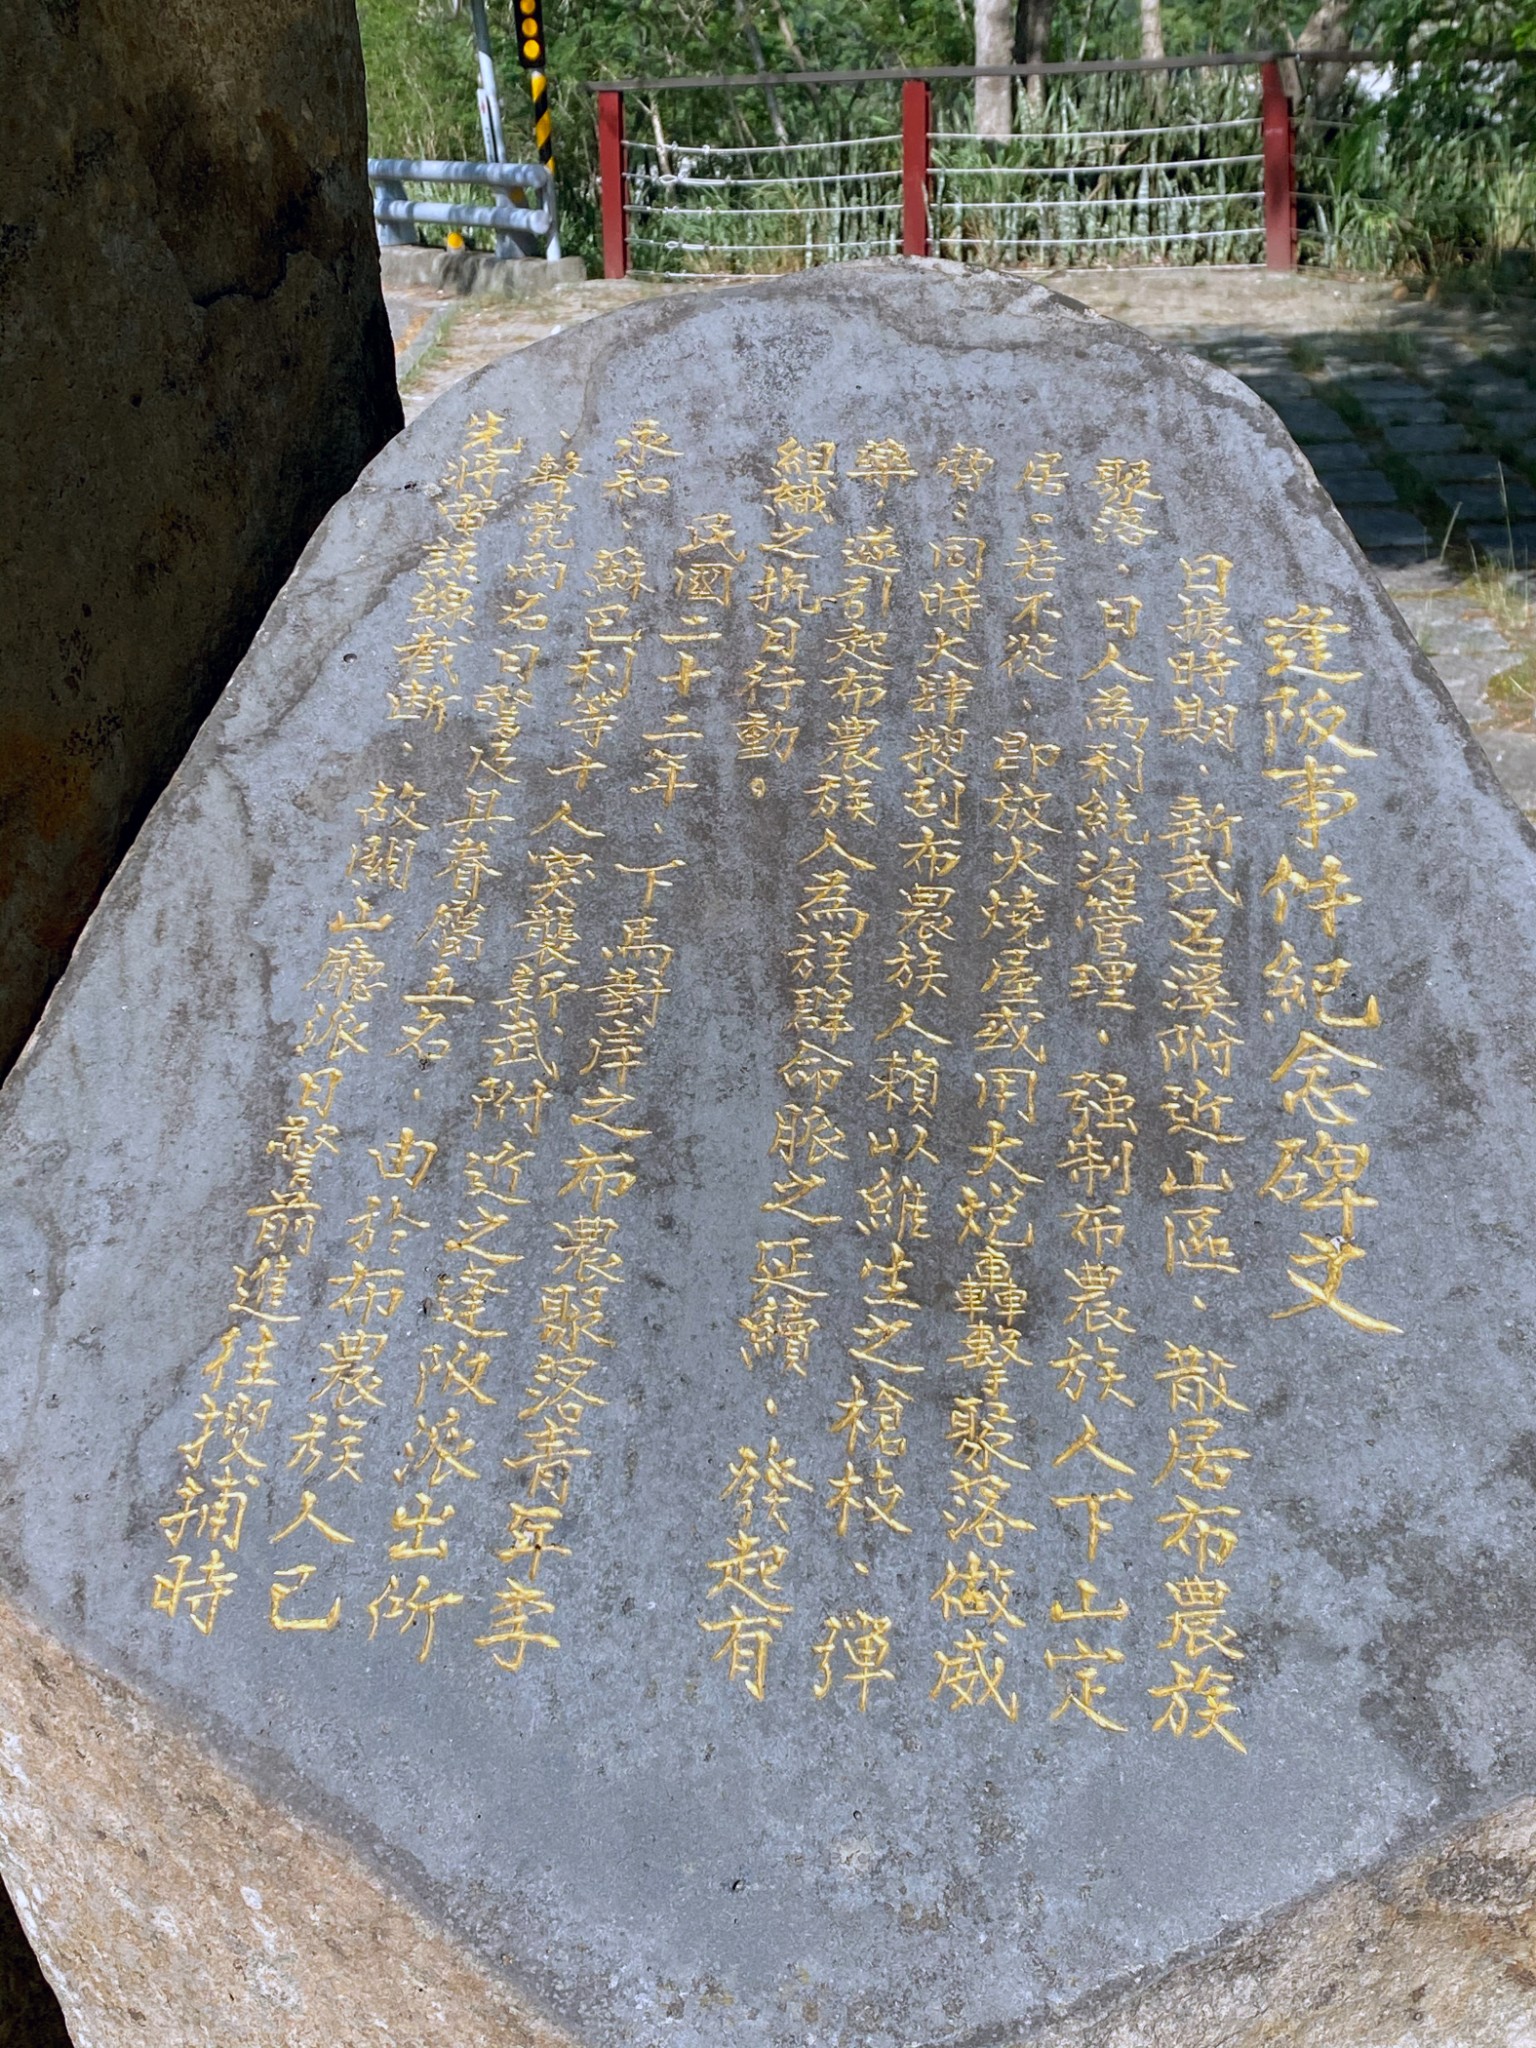 逢阪事件紀念碑文
日據時期、新武呂溪附近山區、散居布農族
聚落、日人為利統治管理、强制布農族人下山定
居。若不從、即放火燒屋或用大炮轟擊聚落做威
脅、同時大肆搜刮布農族人賴以維生之槍枝、彈
藥、遂引起布農族人為族群命脈之延續、發起有
組織之抗日行動。
民國二十二年、丫馬對岸之布農聚落青年李
永和、蘇巴利等十人突襲新武附近之逢阪派出所
、擊斃兩名日警及其眷屬五名、由於布農族人已
先將電話線截斷、故關山廳派日警前進往搜捕時